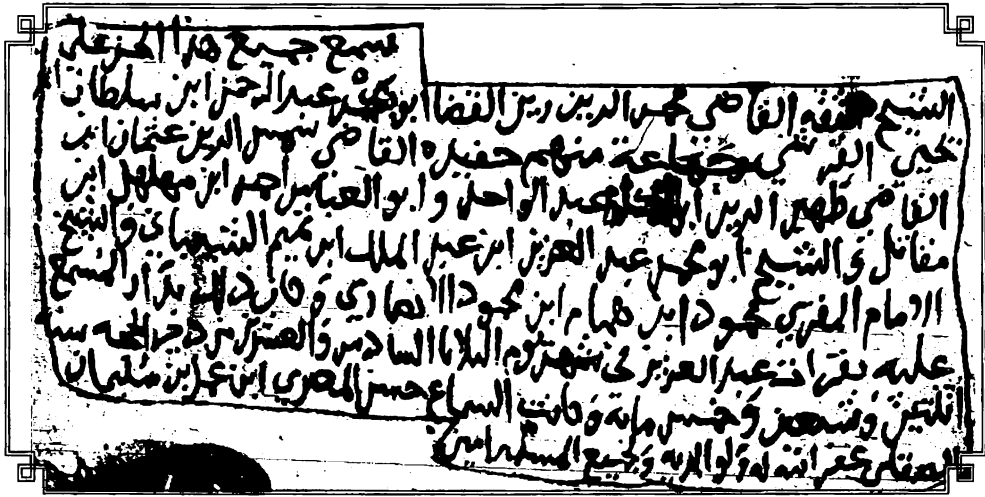 سمع جميع هذا الجزء على
الشيخ الفقيه القاضي محمد الدين زين القضاة ابو بكر محمد عبد الرحمن ابن سلطان ابن
يحيى القرشي جماعة منهم حفيده القاضي شمس الدين عثمان ابن
القاضي ظهير الدين عبد الواحد و ابو العباس احمد ابن مهلهل ابن
مقاتل و الشيخ ابو محمد عبد العزيز ابن عبد الملك ابن تميم الشيباني و الشيخ
الامام المقرئ محمود ابن همام ابن محمود الانصاري و ذلك بدار المسمع
عليه بقراءة عبد العزيز في شهر يوم الثلاثا السادس والعشرين من ذي الحجة سنة
اثنتين وتسعين وخمس ماية وكاتب السماع حسن المصري ابن محمد ابن سليمان
الصقلي غفر الله له ولوالديه وجميع المسلمين امين